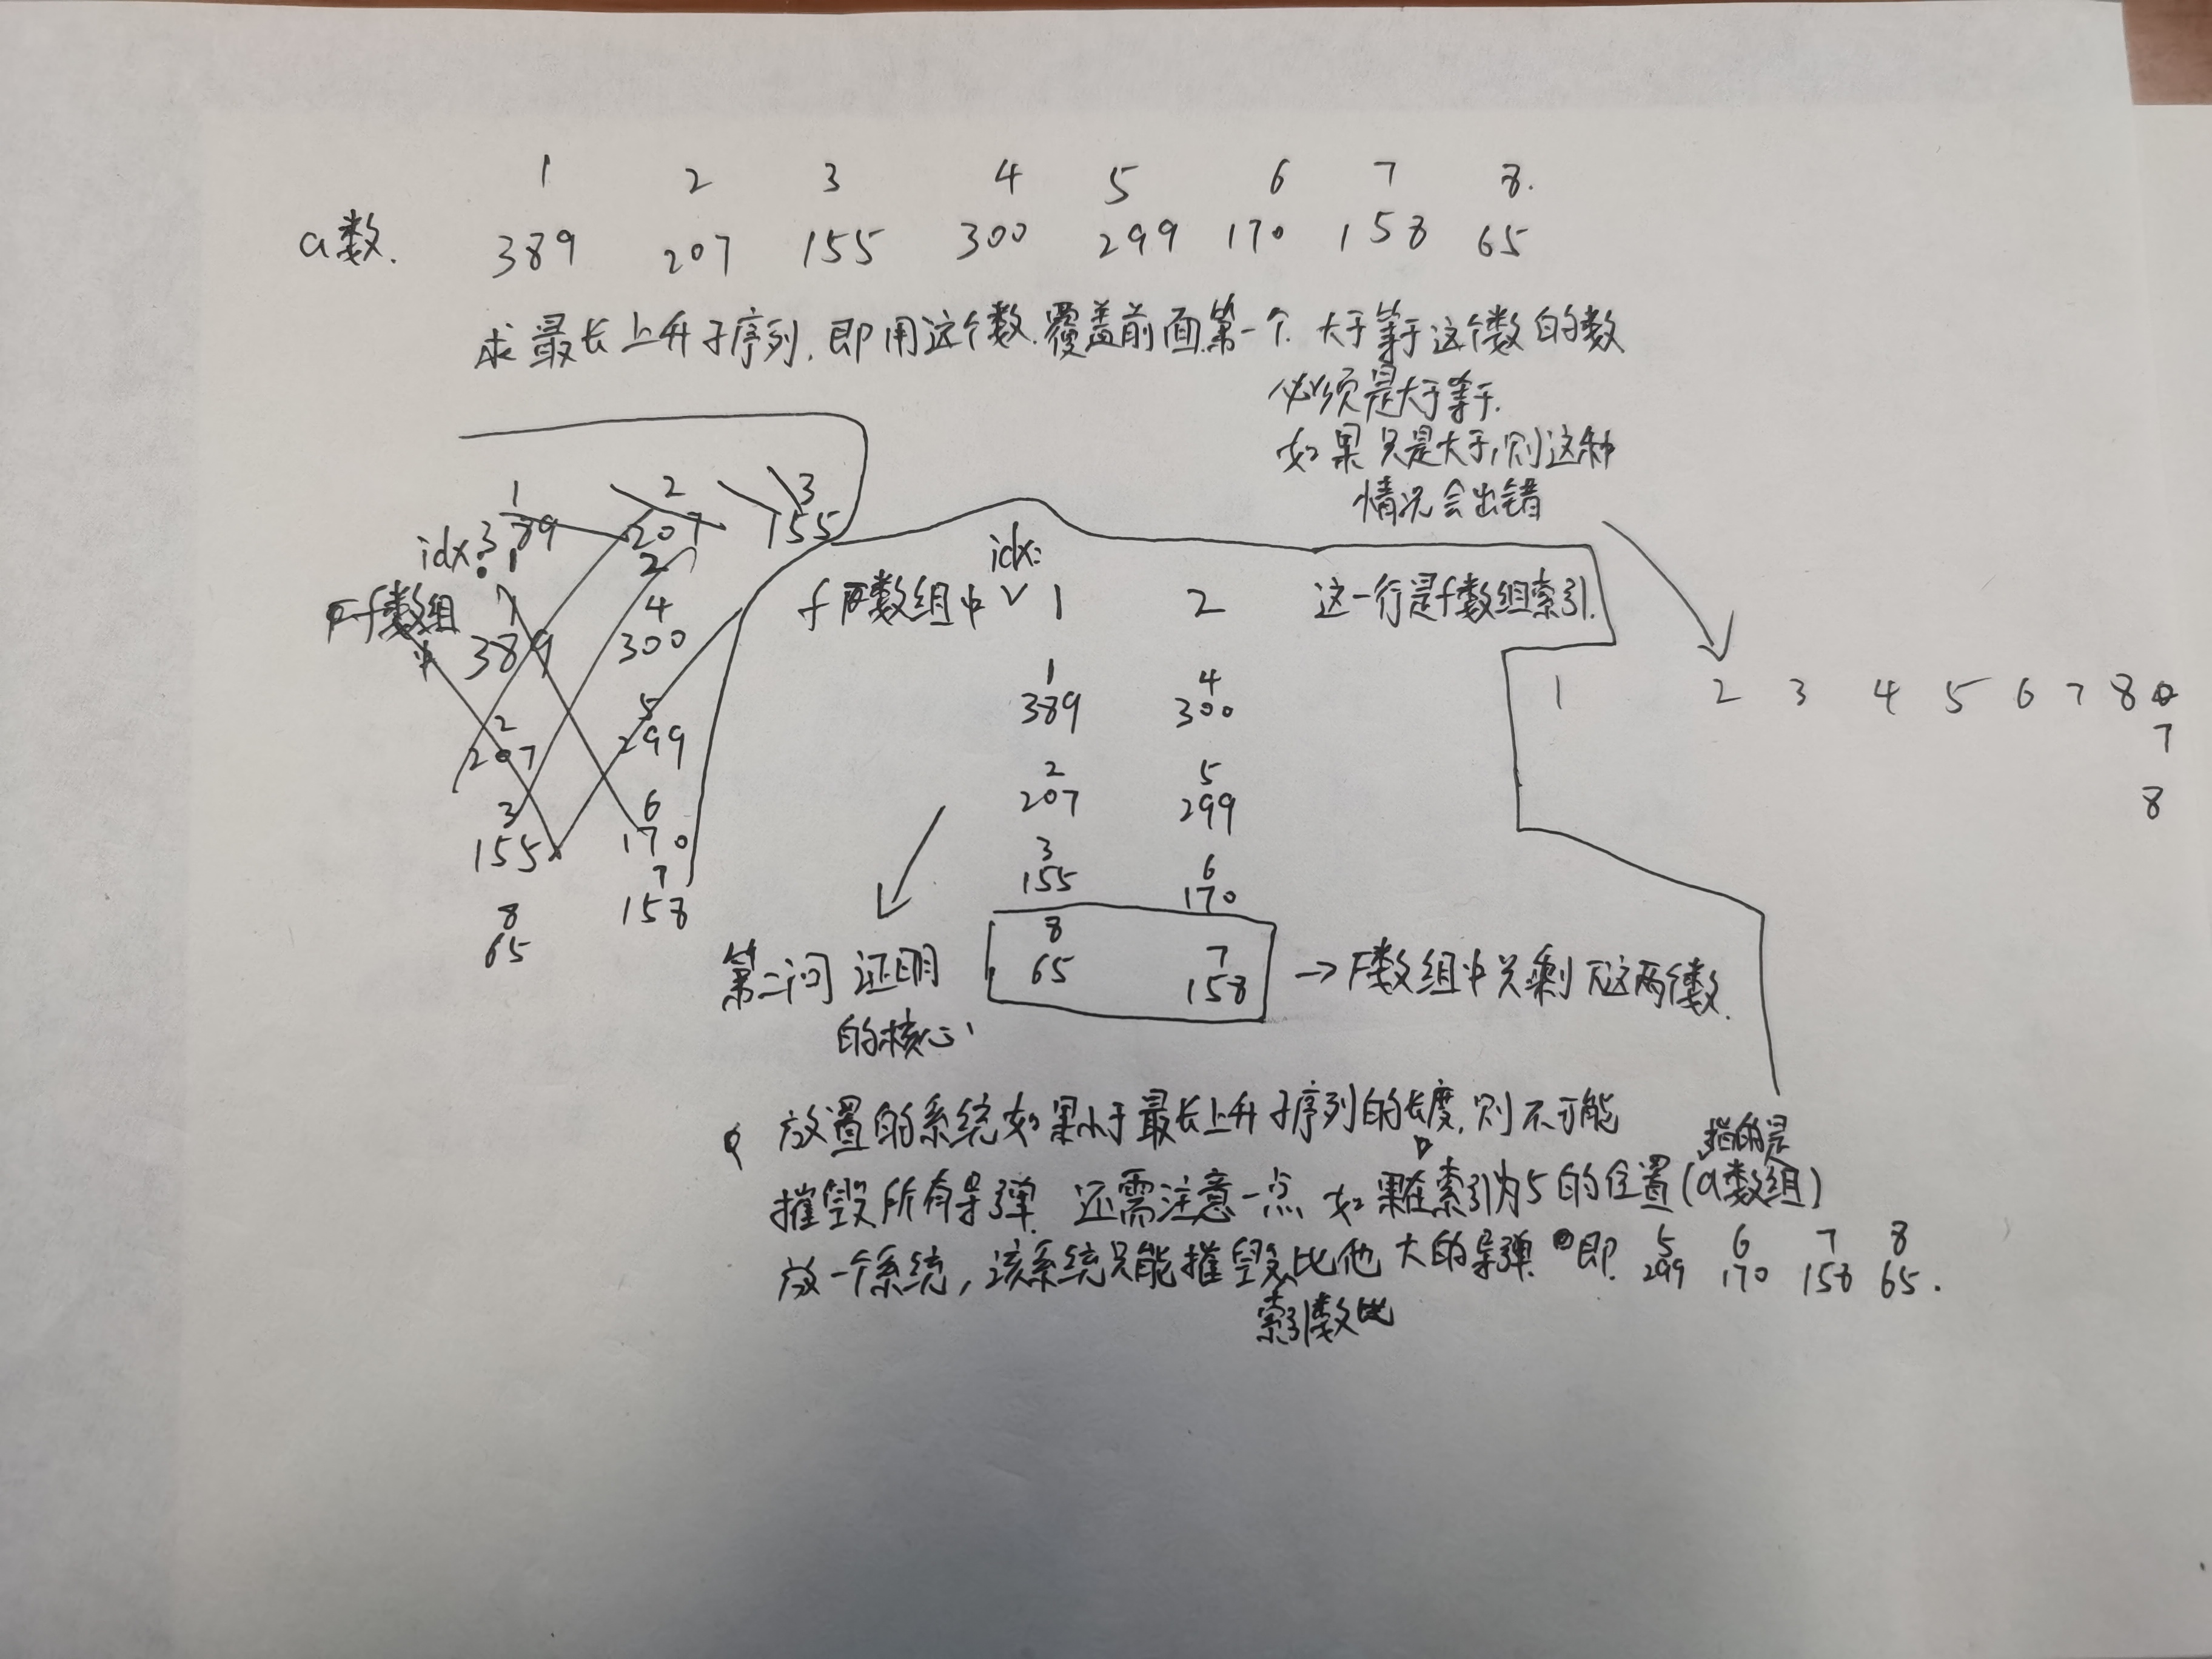 1 2 3 4 5 6 7 8.
a数. 389 207 155 300 299 170 158 65
求最长上升子序列,即用这个数.覆盖前面第一个.大于等于这个数的数
必须是大于等于.
如果只是大于,则这种
情况会出错
1 2 3
389 207 155
idx: 1 2
f数组
中
1 4
389 300
2 5
207 299
3 6
155 170
8 7
65 158
idx:
f 数组中 1 2 这一行是f数组索引.
1 4
389 300
2 5
207 299
3 6
155 170
8 7
65 158
→ F数组中只剩下这两个数.
1 2 3 4 5 6 7 8
7
8
第二问 证明
的核心
放置的系统如果小于最长上升子序列的长度,则不可能
摧毁所有导弹. 还需注意一点 如果在索引为5的位置(a数组)
指的是
放一个系统,该系统只能摧毁比他大的导弹 即. 5 6 7 8
299 170 158 65.
索引数比